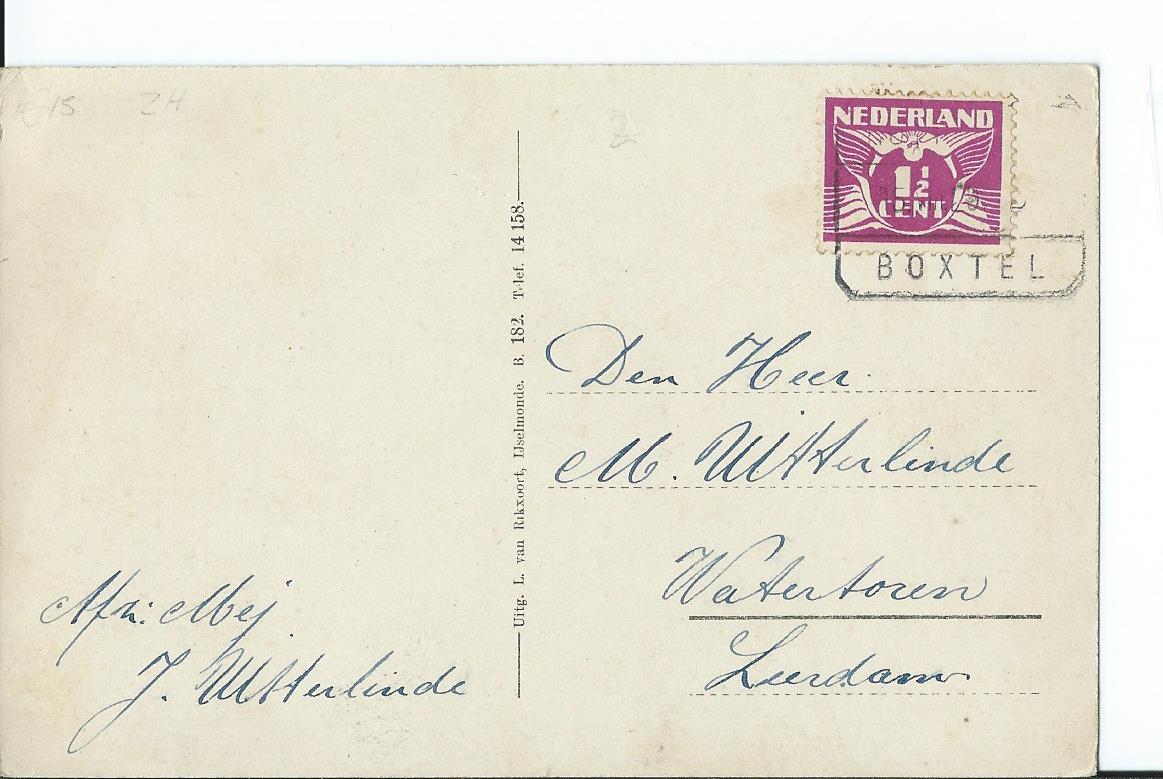 15 ZH
NEDERLAND
1½
CENT
BOXTEL
Uitg. L. van Rikxoort, IJselmonde. B. 182. Telef. 14158.
Den Heer.
M. Uitterlinde
Watertoren
Leerdam
Afz: Mej.
J. Uitterlinde